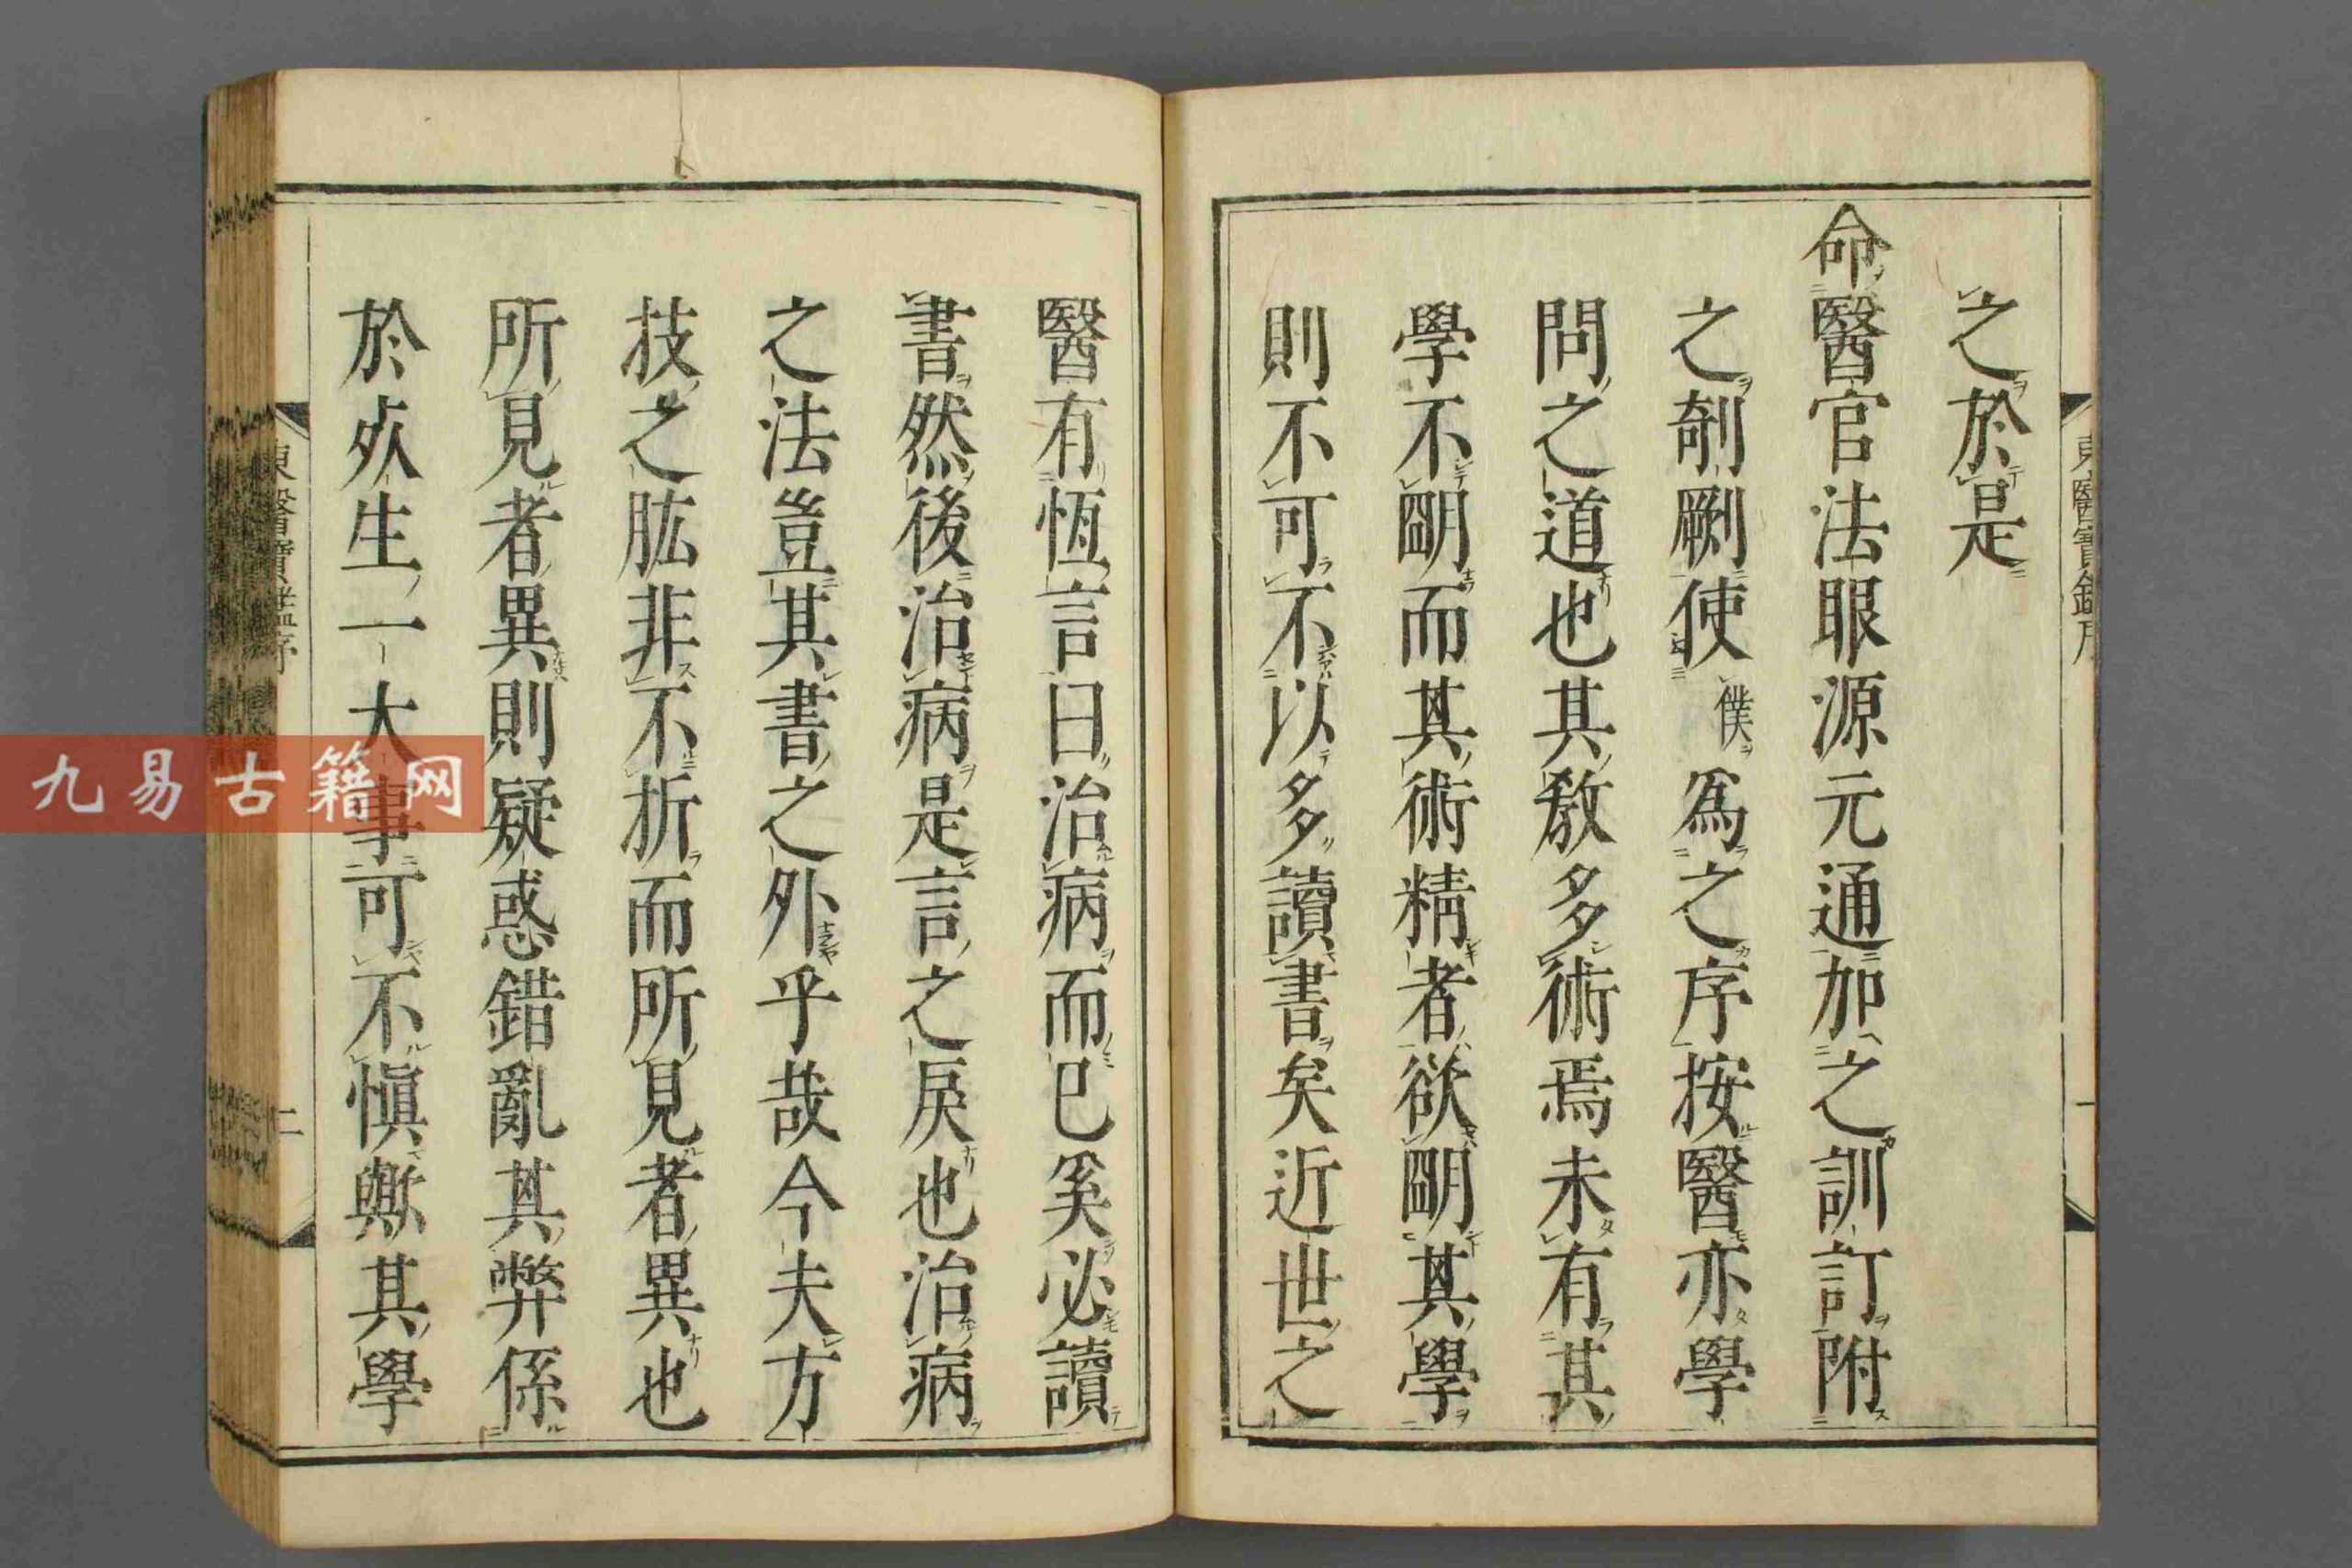 之於是
命醫官法眼源元通加之訓訂附
之剞劂使僕爲之序按醫亦學
問之道也其敎多術焉未有其
學不朙而其術精者欲朙其學
則不可不以多讀書矣近世之
醫有恆言曰治病而已奚必讀
書然後治病是言之戾也治病
之法豈其書之外乎哉今夫方
技之肱非不折而所見者異也
所見者異則疑惑錯亂其弊係
於㱙生一大事可不愼歟其學
東醫寶鑑序
一
東醫寶鑑序
二
九易古籍网